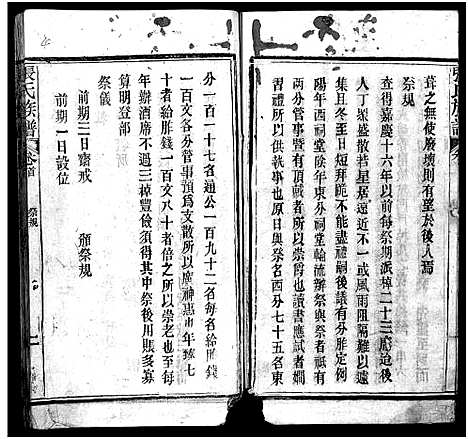 葺之無使廢壞則有望於後人焉
祭規
查得嘉慶十六年以前每祭期派棹二十三席迨後
人丁繁盛散若星居遠近不一或風雨阻隔難以遽
集且冬至日短拜跪不能盡禮嗣後議有分胙定例
陽年西分陰年東分祠堂輪流辦祭與祭者祗有
兩分管事暨有頂戴者所以崇爵也讀書應試者嫻
習禮所以供事也原日與祭名西分七十五名東
分一百一十七名通公一百九十二名每名給胙錢
一百文各分管事預爲支散所以廣神惠也年躋七
十者給胙錢一百文八十者倍之所以崇老也十六
年辦酒席不過三棹豐儉須得其中祭後用賬多寡
算明登部
祭儀
前期三日齋戒 頒祭規
前期一日設位
張氏族譜 卷首 祭規